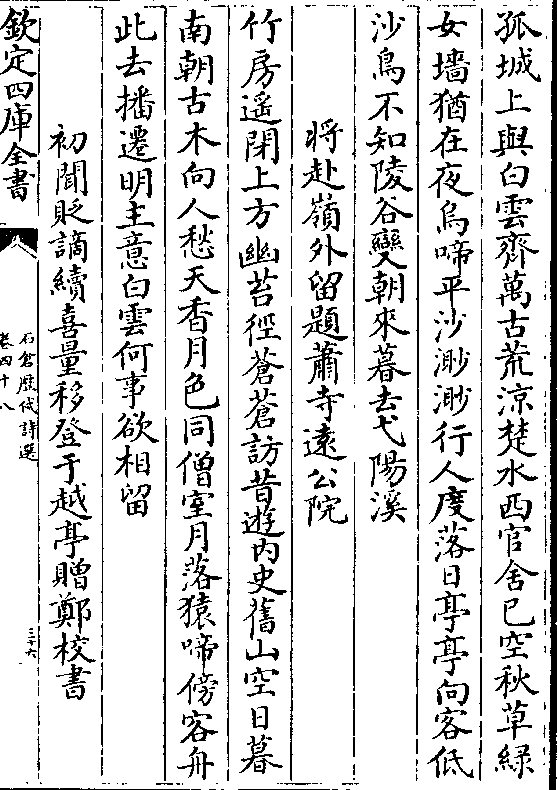 孤城上與白雲齊萬古荒涼楚水西官舍已空秋草緑
女墻猶在夜烏啼平沙渺渺行人度落日亭亭向客低
沙鳥不知陵谷變朝來暮去弋陽溪
將赴嶺外留題蕭寺遠公院
竹房遙閉上方幽苔徑蒼蒼訪昔遊内史舊山空日暮
南朝古木向人愁天香月色同僧室月落猿啼傍客舟
此去播遷明主意白雲何事欲相留
初聞貶謫續喜量移登于越亭贈鄭校書
欽定四庫全書
石倉歷代詩選
卷四十八
三十六